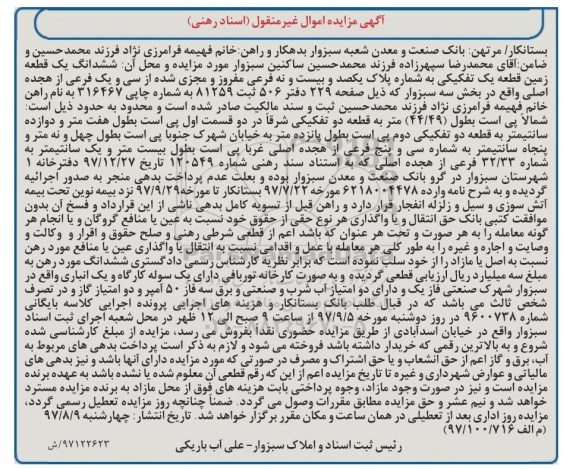 آگهی مزایده اموال غیرمنقول (اسناد رهنی)
بستانکار/ مرتهن: بانک صنعت و معدن شعبه سبزوار بدهکار و راهن:خانم فهیمه فرامرزی نژاد فرزند محمدحسین و
ضامن:آقای محمدرضا سپهرزاده فرزند محمدحسین ساکنین سبزوار مورد مزایده و محل آن: ششدانگ یک قطعه
زمین قطعه یک تفکیکی به شماره پلاک یکصد و بیست و نه فرعی مفروز و مجزی شده از سی و یک فرعی از هجده
اصلی واقع در بخش سه سبزوار که ذیل صفحه ۲۲۹ دفتر ۵۰۶ ثبت ۸۱۲۵۹ به شماره چاپی ۳۱۶۴۶۷ به نام راهن
خانم فهیمه فرامرزی نژاد فرزند محمدحسین ثبت و سند مالکیت صادر شده است و محدود به حدود ذیل است:
شمالاً پی است بطول (۴۴/۴۹) متر به قطعه دو تفکیکی شرقاً در دو قسمت اول پی است بطول هفت متر و دوازده
سانتیمتر به قطعه دو تفکیکی دوم پی است بطول پانزده متر به خیابان شهرک جنوباً پی است بطول چهل و نه متر و
پنجاه سانتیمتر به شماره سی و پنج فرعی از هجده اصلی غرباً پی است بطول بیست متر و یک سانتیمتر به
شماره ۳۲/۳۳ فرعی از هجده اصلی که به استناد سند رهنی شماره ۱۲۰۵۴۹ تاریخ ۹۷/۱۲/۲۷ دفترخانه ۱
شهرستان سبزوار در گرو بانک صنعت و معدن سبزوار بوده و بعلت عدم پرداخت بدهی منجر به صدور اجرائیه
گردیده و به شرح نامه وارده ۶۲۱۸۰۰۴۴۷۸ مورخه ۹۷/۷/۲۲ بستانکار تا مورخه ۹۷/۹/۲۹ نزد بیمه نوین تحت بیمه
آتش سوزی و سیل و زلزله انفجار قرار دارد و راهن قبل از تسویه کامل بدهی ناشی از این قرارداد و فسخ آن بدون
موافقت کتبی بانک حق انتقال و یا واگذاری هر نوع حقی از حقوق خود نسبت به عین یا منافع گروگان و یا انجام هر
گونه معامله را به هر صورت و تحت هر عنوان که باشد اعم از قطعی شرطی رهنی و صلح حقوق و اقرار و وکالت و
وصایت و اجاره و غیره را به طور کلی هر معامله یا عمل و اقدامی نسبت به انتقال یا واگذاری عین یا منافع مورد رهن
نسبت به اصل یا مازاد را از خود سلب نموده است که برابر نظریه کارشناس رسمی دادگستری ششدانگ مورد رهن به
مبلغ سه میلیارد ریال ارزیابی قطعی گردیده و به صورت کارخانه توربافی دارای یک سوله کارگاه و یک انباری واقع در
سبزوار شهرک صنعتی فاز یک و دارای دو امتیاز آب شرب و صنعتی و برق سه فاز ۵۰ آمپر و دو امتیاز گاز و در تصرف
شخص ثالث می باشد که در قبال طلب بانک بستانکار و هزینه های اجرایی پرونده اجرایی کلاسه بایگانی
شماره ۹۶۰۰۷۳۸ در روز دوشنبه مورخه ۹۷/۹/۵ از ساعت ۹ صبح الی ۱۲ ظهر در محل شعبه اجرای ثبت اسناد
سبزوار واقع در خیابان اسدآبادی از طریق مزایده حضوری نقداً بفروش می رسد، مزایده از مبلغ کارشناسی شده
شروع و به بالاترین رقمی که خریدار داشته باشد فروخته می شود و لازم به ذکر است پرداخت بدهی های مربوط به
آب، برق و گاز اعم از حق انشعاب و یا حق اشتراک و مصرف در صورتی که مورد مزایده دارای آنها باشد و نیز بدهی های
مالیاتی و عوارض شهرداری و غیره تا تاریخ مزایده اعم از این که رقم قطعی آن معلوم شده یا نشده باشد به عهده برنده
مزایده است و نیز در صورت وجود مازاد، وجوه پرداختی بابت هزینه های فوق از محل مازاد به برنده مزایده مسترد
خواهد شد و نیم عشر و حق مزایده مطابق مقررات وصول می گردد. ضمناً چنانچه روز مزایده تعطیل رسمی گردد،
مزایده روز اداری بعد از تعطیلی در همان ساعت و مکان مقرر برگزار خواهد شد. تاریخ انتشار: چهارشنبه ۹۷/۸/۹
(م الف ۹۷/۱۰۰/۷۱۶)
رئیس ثبت اسناد و املاک سبزوار- علی آب باریکی
۹۷۱۲۲۶۲۳/ش